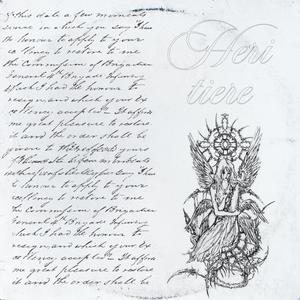 of this date a few moments
since in which you say I have
the honour to apply to your
to restore to me
the Commission of Brigadier
General of Brigade Infantry
which I had the honour to
resign and which your Ex
cellency accepted - It affords
me great pleasure to restore
it and the order shall be
given to
the honour to apply to your
cellency to restore to me
the Commission of Brigadier
General of Brigade Infantry
which I had the honour to
resign and which your Ex
cellency accepted - It affords
me great pleasure to restore
it and the order shall be
Heri
tiere